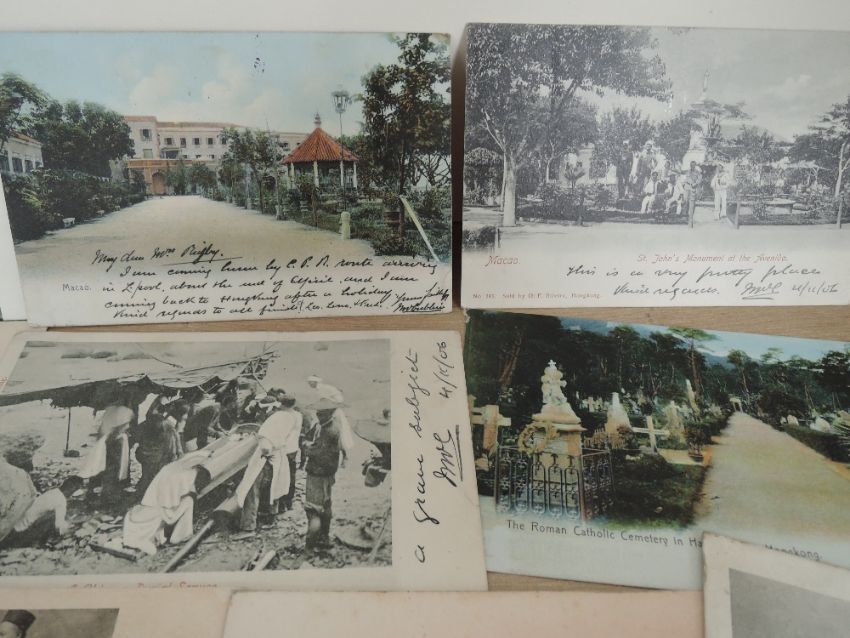 My dear Mrs Rigby.
I am coming home by C.P.R. route arriving
in L'pool, about the end of April, and I am
coming back to Hongkong after a holiday.
Kind regards to all
Macao.
Macao.
St. John's Monument at the Avenida.
This is a very pretty place
Kind regards.
4/11/06
No. 105. Sold by Hongkong.
a grave subject
4/11/06
The Roman Catholic Cemetery in Hongkong.